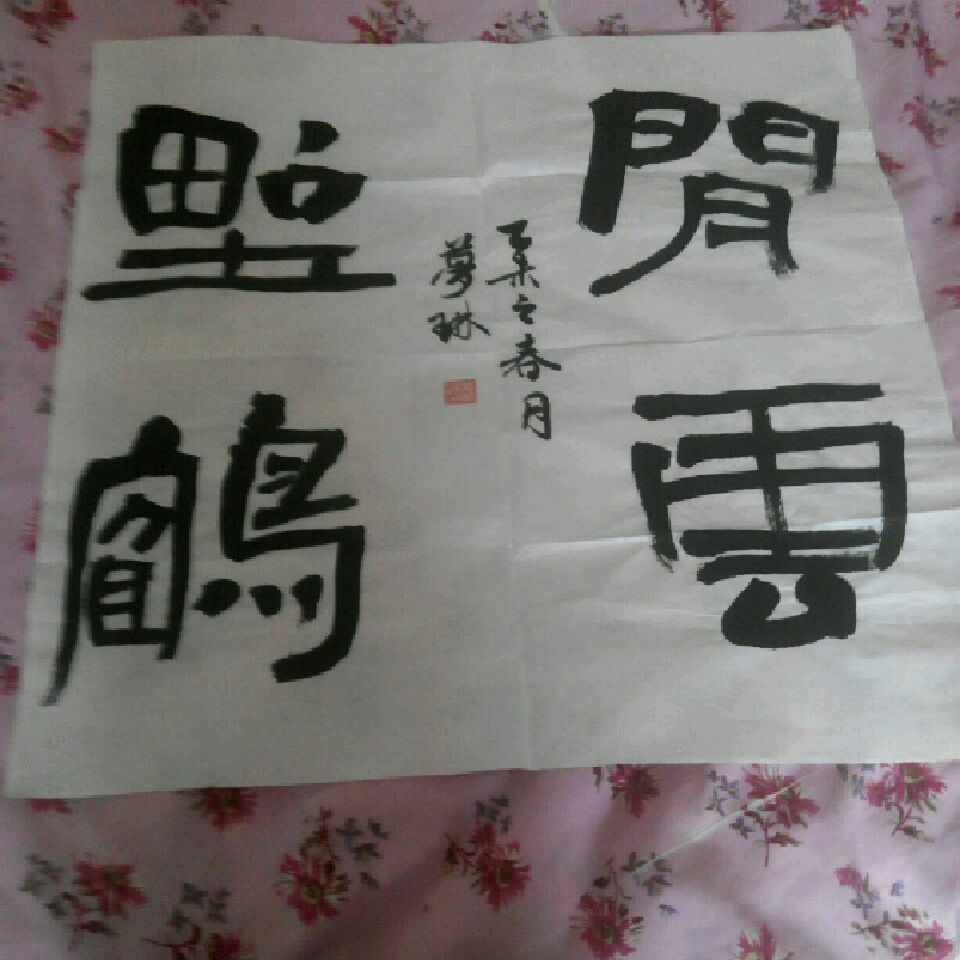 閒雲
野鶴
乙未之春月
夢琳